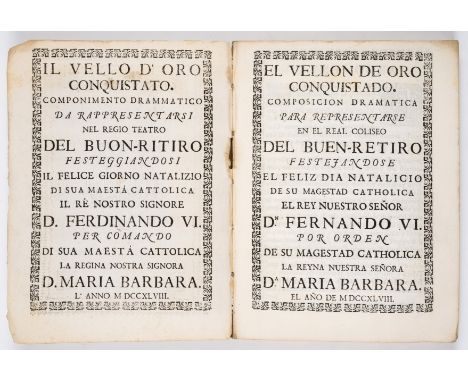 IL VELLO D' ORO
CONQUISTATO.
COMPONIMENTO DRAMMATICO
DA RAPPRESENTARSI
NEL REGIO TEATRO
DEL BUON-RITIRO
FESTEGGIANDOSI
IL FELICE GIORNO NATALIZIO
DI SUA MAESTÁ CATTOLICA
IL RÈ NOSTRO SIGNORE
D. FERDINANDO VI.
PER COMANDO
DI SUA MAESTÁ CATTOLICA
LA REGINA NOSTRA SIGNORA
D. MARIA BARBARA.
L' ANNO MDCCXLVIII.
EL VELLON DE ORO
CONQUISTADO.
COMPOSICION DRAMATICA
PARA REPRESENTARSE
EN EL REAL COLISEO
DEL BUEN-RETIRO
FESTEJANDOSE
EL FELIZ DIA NATALICIO
DE SU MAGESTAD CATHOLICA
EL REY NUESTRO SEÑOR
D.N FERNANDO VI.
POR ORDEN
DE SU MAGESTAD CATHOLICA
LA REYNA NUESTRA SEÑORA
D.A MARIA BARBARA.
EL AÑO DE MDCCXLVIII.